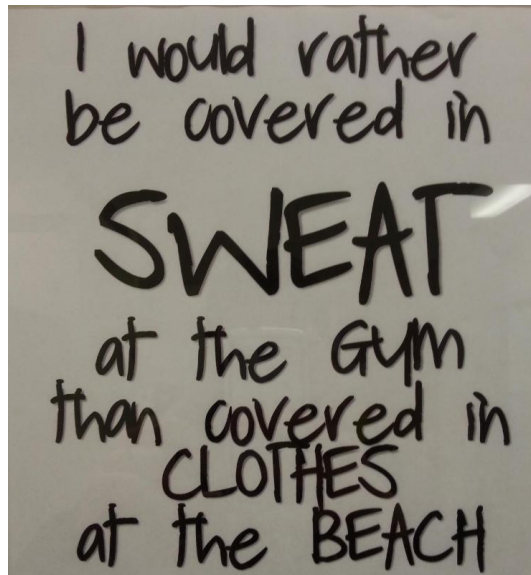 I would rather
be covered in
SWEAT
at the Gym
than covered in
CLOTHES
at the BEACH